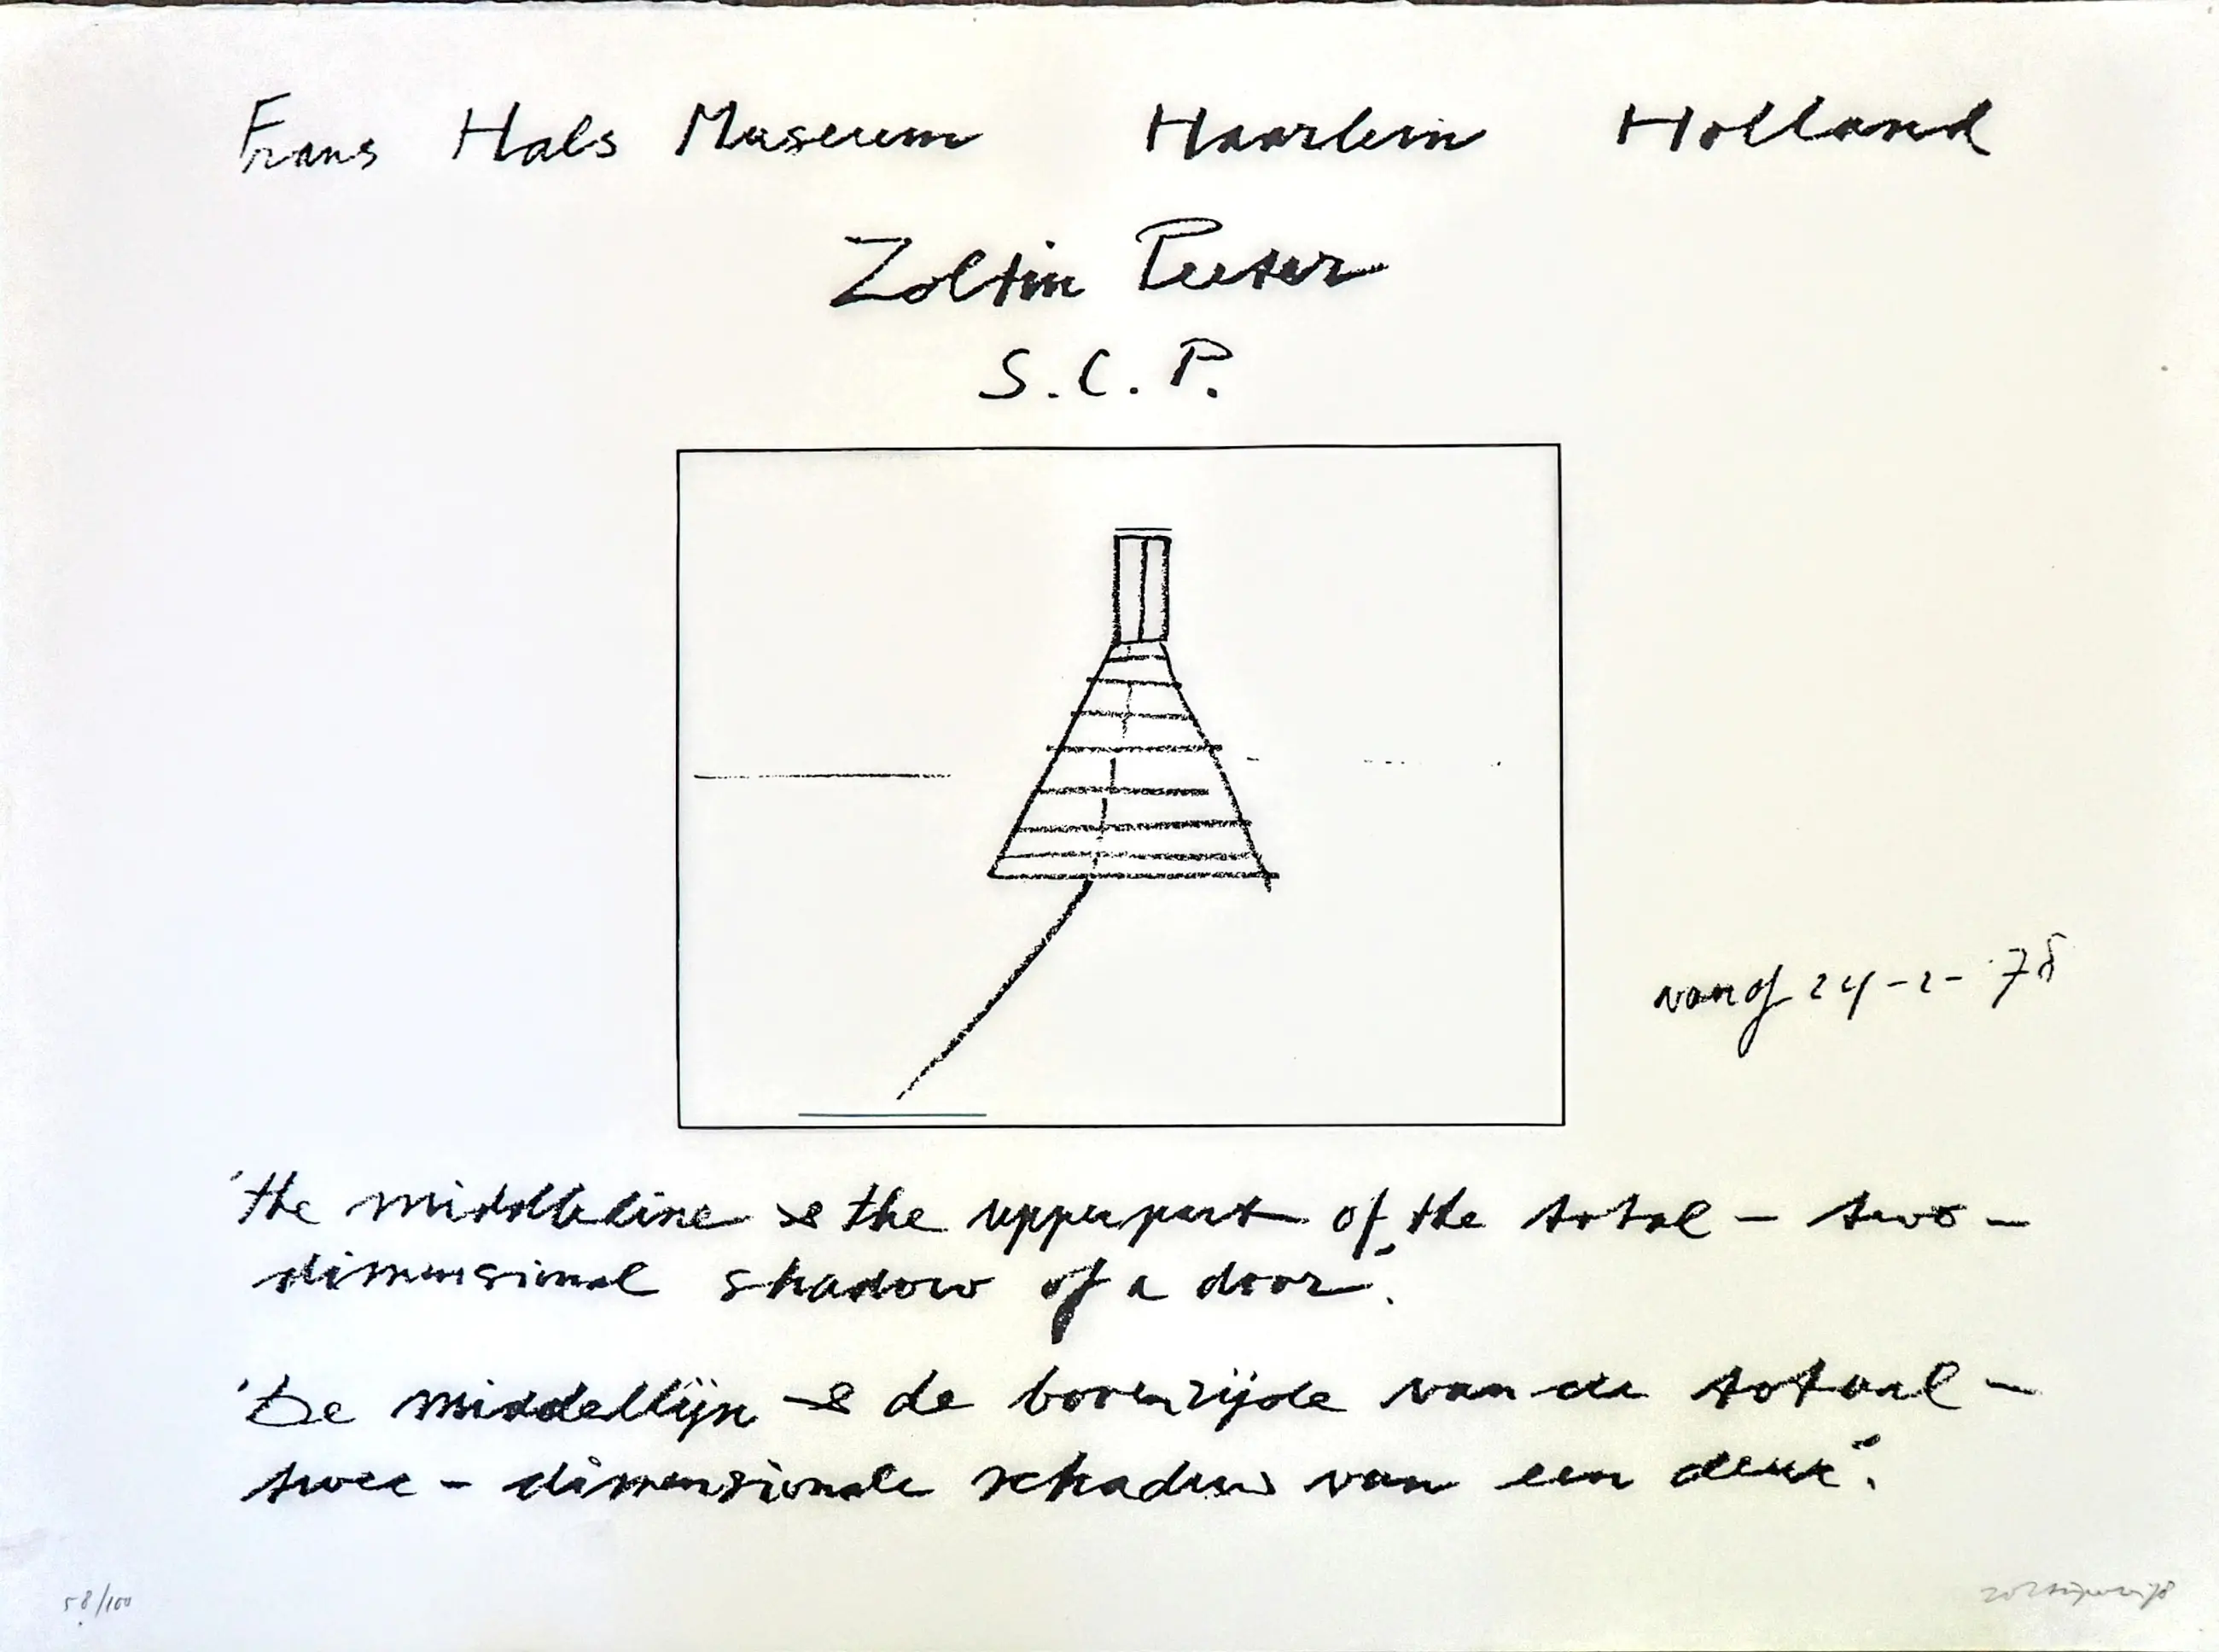 Frans Hals Museum Haarlem Holland
Zoltin Peeter
S.C.P.
vanaf 24-2-'78
'the middleline is the upperpart of the total - two -
dimensional shadow of a door'.
'De middellijn is de bovenzijde van de totaal -
twee - dimensionale schaduw van een deur'.
58/100